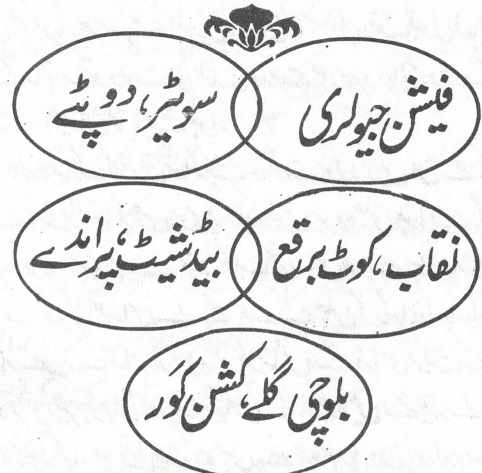 فیشن جیولری
سویٹر، دوپٹے
نقاب، کوٹ برقع
بیڈ شیٹ، پراندے
بلوچی گلے، کشن کور